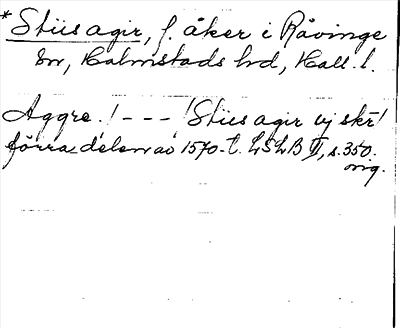 * Stiis agir, f. åker i Råvinge
sn, Halmstads hd, Hall. l.
Aggre! - - - ! Stiis agir uj skr!
förra delen av 1570-t. LSLB II, s. 350.
orig.